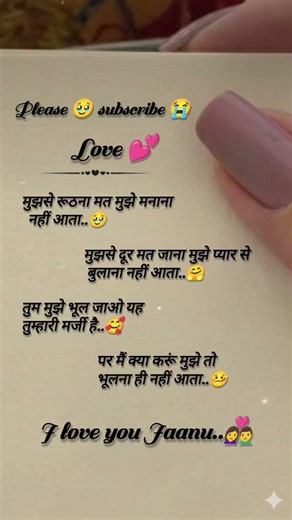 Please 🥹 subscribe 😭
Love 💕
मुझसे रूठना मत मुझे मनाना
नहीं आता..🥹
मुझसे दूर मत जाना मुझे प्यार से
बुलाना नहीं आता..🤗
तुम मुझे भूल जाओ यह
तुम्हारी मर्जी है..🥰
पर मैं क्या करूं मुझे तो
भूलना ही नहीं आता..🤒
I love you Jaanu..💑